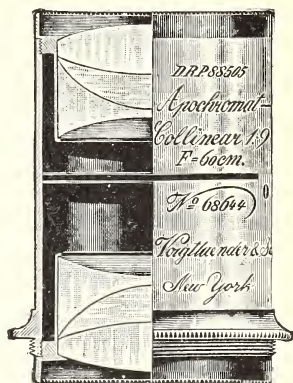 DRP88505
Apochromat-
Collinear 1:9
F=60cm.
No 68644
Voigtlaender & So
New York
0